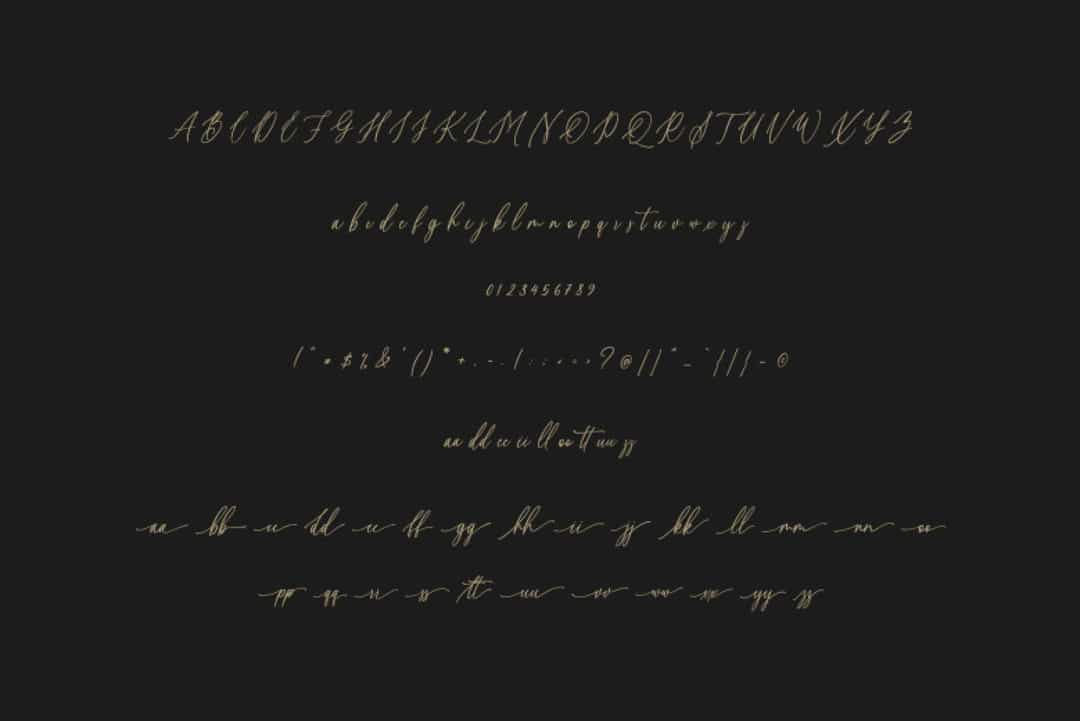 A B C D E F G H I J K L M N O P Q R S T U V W X Y Z
a b c d e f g h i j k l m n o p q r s t u v w x y z
0 1 2 3 4 5 6 7 8 9
! " # $ % & ' ( ) * + , - . / : ; < = > ? @ [ \ ] ^ _ ` { | } ~ ©
aa dd ee ii ll oo tt uu zz
aa bb cc dd ee ff gg hh ii jj kk ll mm nn oo
pp qq rr ss tt uu vv ww xx yy zz